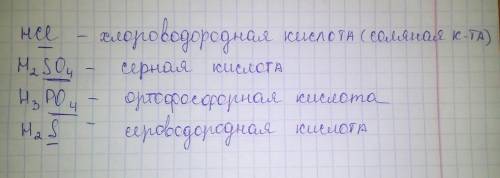 HCl - хлороводородная кислота (соляная к-та)
H₂SO₄ - серная кислота
H₃PO₄ - ортофосфорная кислота
H₂S - сероводородная кислота